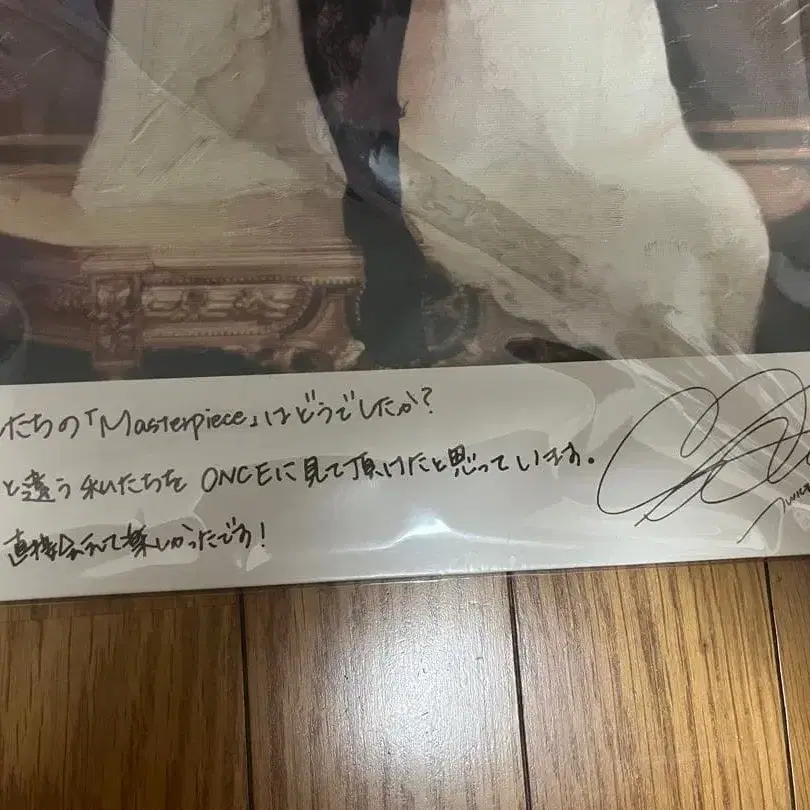 たちの「Masterpiece」はどうでしたか?
と違う私たちを ONCEに見て頂けたと思っています。
直接会えて楽しかったです!